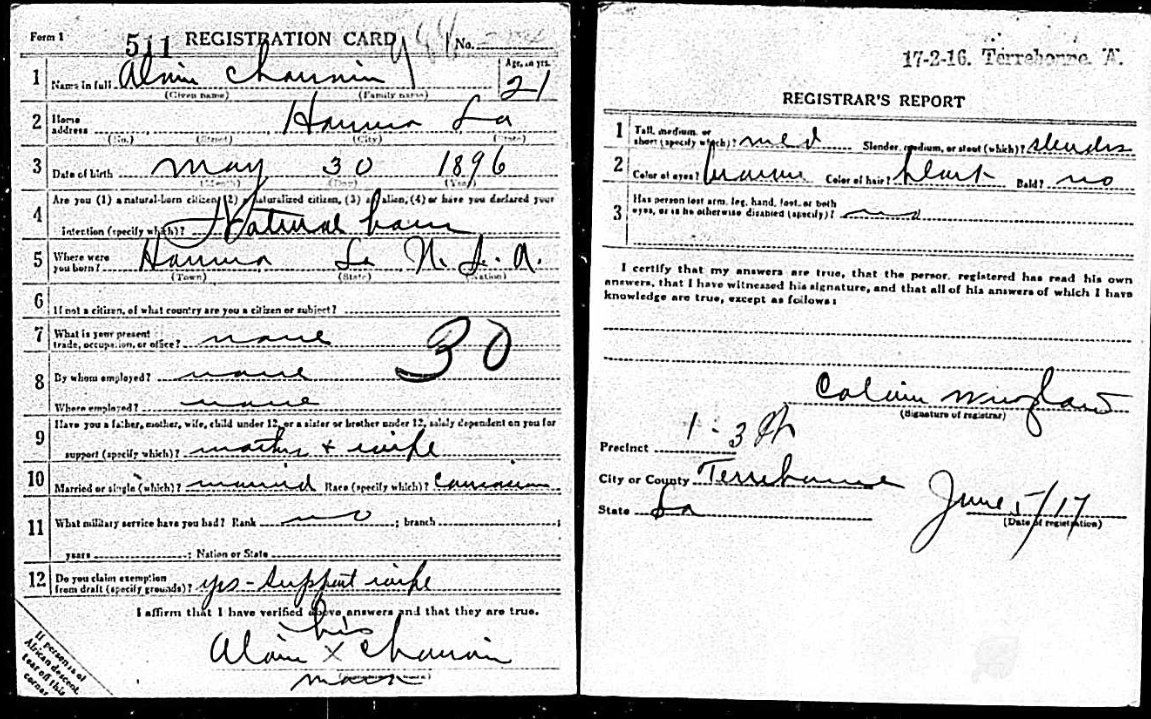 Form 1
511 REGISTRATION CARD No.
1 Name in full Alvin Chauvin Age, in yrs. 21
(Given name) (Family name)
2 Home address Houma La
(No.) (Street) (City) (State)
3 Date of birth May 30 1896
(Month) (Day) (Year)
4 Are you (1) a natural-born citizen, (2) a naturalized citizen, (3) an alien, (4) or have you declared your
intention (specify which)? Natural born
5 Where were you born? Houma La U.S.A.
(Town) (State) (Nation)
6 If not a citizen, of what country are you a citizen or subject?
7 What is your present trade, occupation, or office? none
30
8 By whom employed? none
Where employed? none
9 Have you a father, mother, wife, child under 12, or a sister or brother under 12, solely dependent on you for
support (specify which)? mother + wife
10 Married or single (which)? married Race (specify which)? Caucasian
11 What military service have you had? Rank no ; branch ;
years ; Nation or State
12 Do you claim exemption from draft (specify grounds)? yes - support wife
I affirm that I have verified above answers and that they are true.
his
Alvin X Chauvin
mark
If person is of
African descent,
tear off this
corner
17-2-16. Terrebonne. A.
REGISTRAR'S REPORT
1 Tall, medium, or short (specify which)? med Slender, medium, or stout (which)? slender
2 Color of eyes? brown Color of hair? black Bald? no
3 Has person lost arm, leg, hand, foot, or both
eyes, or is he otherwise disabled (specify)? no
I certify that my answers are true, that the person registered has read his own
answers, that I have witnessed his signature, and that all of his answers of which I have
knowledge are true, except as follows:
Calvin
(Signature of registrar)
Precinct 1 - 3
City or County Terrebonne
State La
June 5/17
(Date of registration)